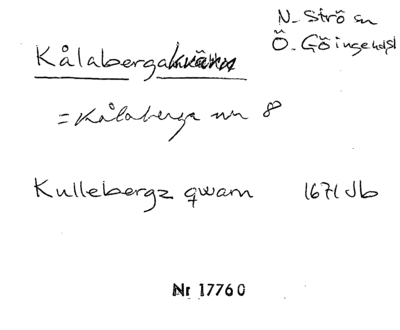 N. Strö sn
Ö. Göinge hdsl
Kålabergakvarn
= Kålaberga nr 8
Kullebergz qwarn 1671 Jb
Nr 17760